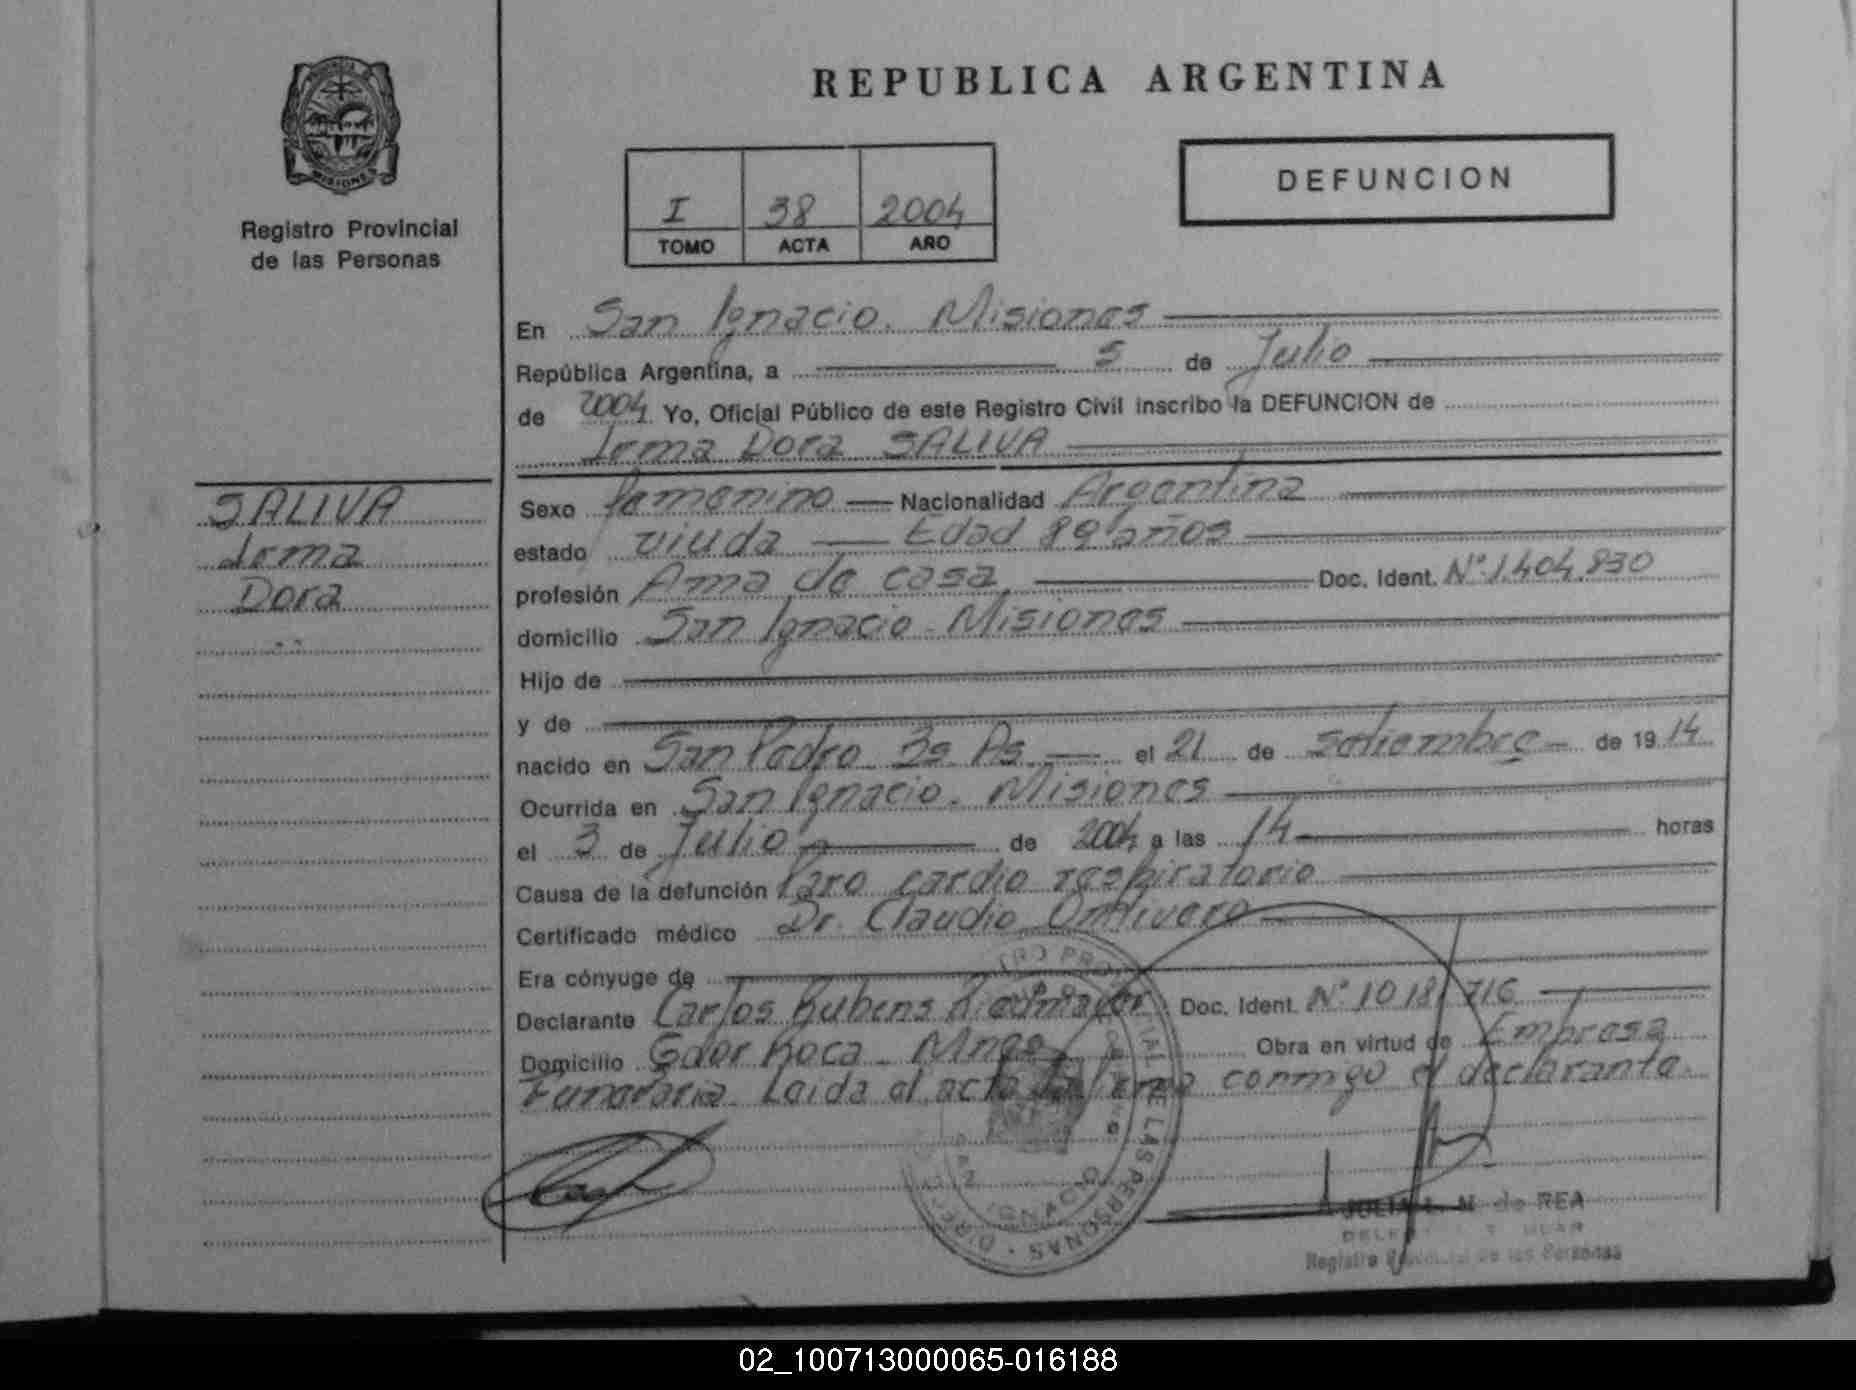 REPUBLICA ARGENTINA
PROVINCIA DE
MISIONES
Registro Provincial
de las Personas
I 38 2004
TOMO ACTA AÑO
DEFUNCION
En San Ignacio. Misiones
República Argentina, a 5 de Julio
de 2004 Yo, Oficial Público de este Registro Civil inscribo la DEFUNCION de
Irma Dora SALIVA
SALIVA
Irma
Dora
Sexo femenino Nacionalidad Argentina
estado viuda Edad 89 años
profesión Ama de casa Doc. Ident. Nº 1.404.830
domicilio San Ignacio - Misiones
Hijo de
y de
nacido en San Pedro Bs. As. el 21 de setiembre de 1914
Ocurrida en San Ignacio. Misiones
el 3 de Julio de 2004 a las 14 horas
Causa de la defunción Paro cardio respiratorio
Certificado médico Dr. Claudio Ontivero
Era cónyuge de
Declarante Carlos Rubens Doc. Ident. Nº 10.181.716
Domicilio Gdor Roca - Mnes Obra en virtud de Empresa
Funeraria. Leida el acta la firma conmigo el declarante.
JULIA L. M de REA
Registro Provincial de las Personas
02_100713000065-016188